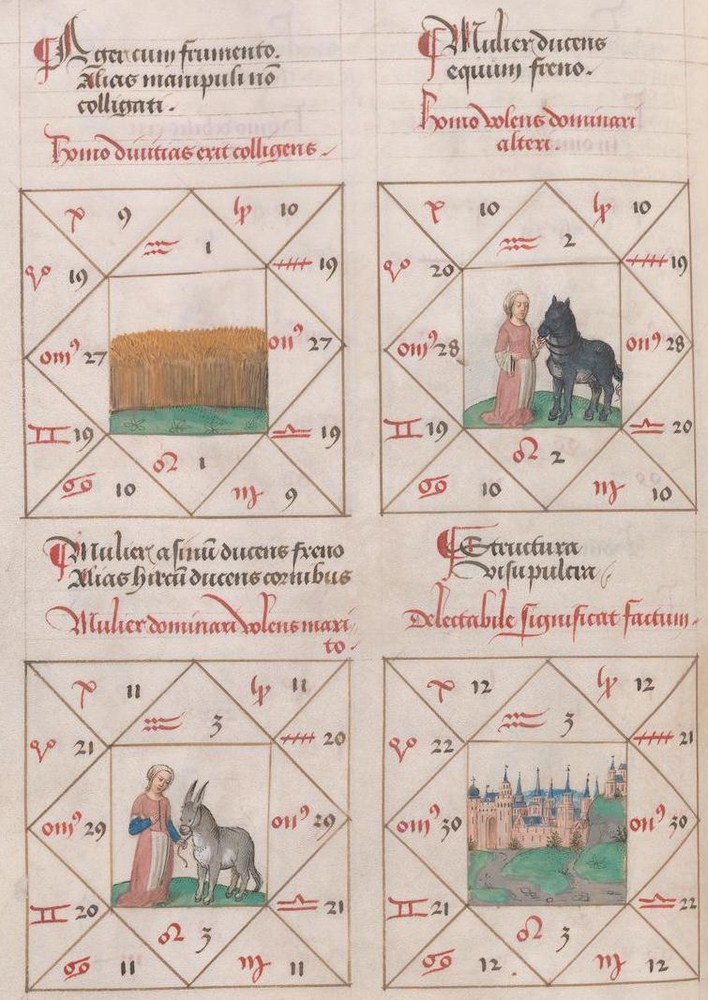 Ager cum frumento.
Alias manipuli nō
colligati.
Homo divitias erit colligens.
♓ 9
♑ 10
♒ 1
♈ 19
♐ 19
om⁹ 27
on⁹ 27
♊ 19
♎ 19
♌ 1
♋ 10
♍ 9
Mulier ducens
equum freno.
Homo volens dominari
alteri.
♓ 10
♑ 10
♒ 2
♈ 20
♐ 19
om⁹ 28
on⁹ 28
♊ 19
♎ 20
♌ 2
♋ 10
♍ 10
Mulier asinū ducens freno
Alias hircū ducens cornibus
Mulier dominari volens mari
to.
♓ 11
♑ 11
♒ 3
♈ 21
♐ 20
om⁹ 29
on⁹ 29
♊ 20
♎ 21
♌ 3
♋ 11
♍ 11
Structura
visu pulcra
Delectabile significat factum.
♓ 12
♑ 12
♒ 3
♈ 22
♐ 21
om⁹ 30
on⁹ 30
♊ 21
♎ 22
♌ 3
♋ 12
♍ 12